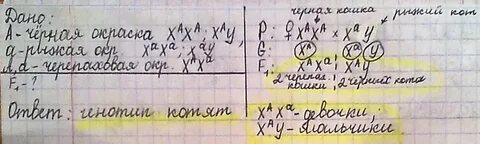 Дано:
А-чёрная окраска XᴬXᴬ; XᴬY,
а-рыжая окр. XᵃXᵃ; XᵃY
А,а-черепаховая окр. XᴬXᵃ
F₁-?
Ответ: генотип котят
чёрная кошка рыжий кот
P: ♀ XᴬXᴬ × XᵃY
G: Xᴬ Xᵃ Y
F₁: XᴬXᵃ; XᴬY
2 черепах. кошки, 2 чёрных кота
XᴬXᵃ-девочки;
XᴬY-мальчики.